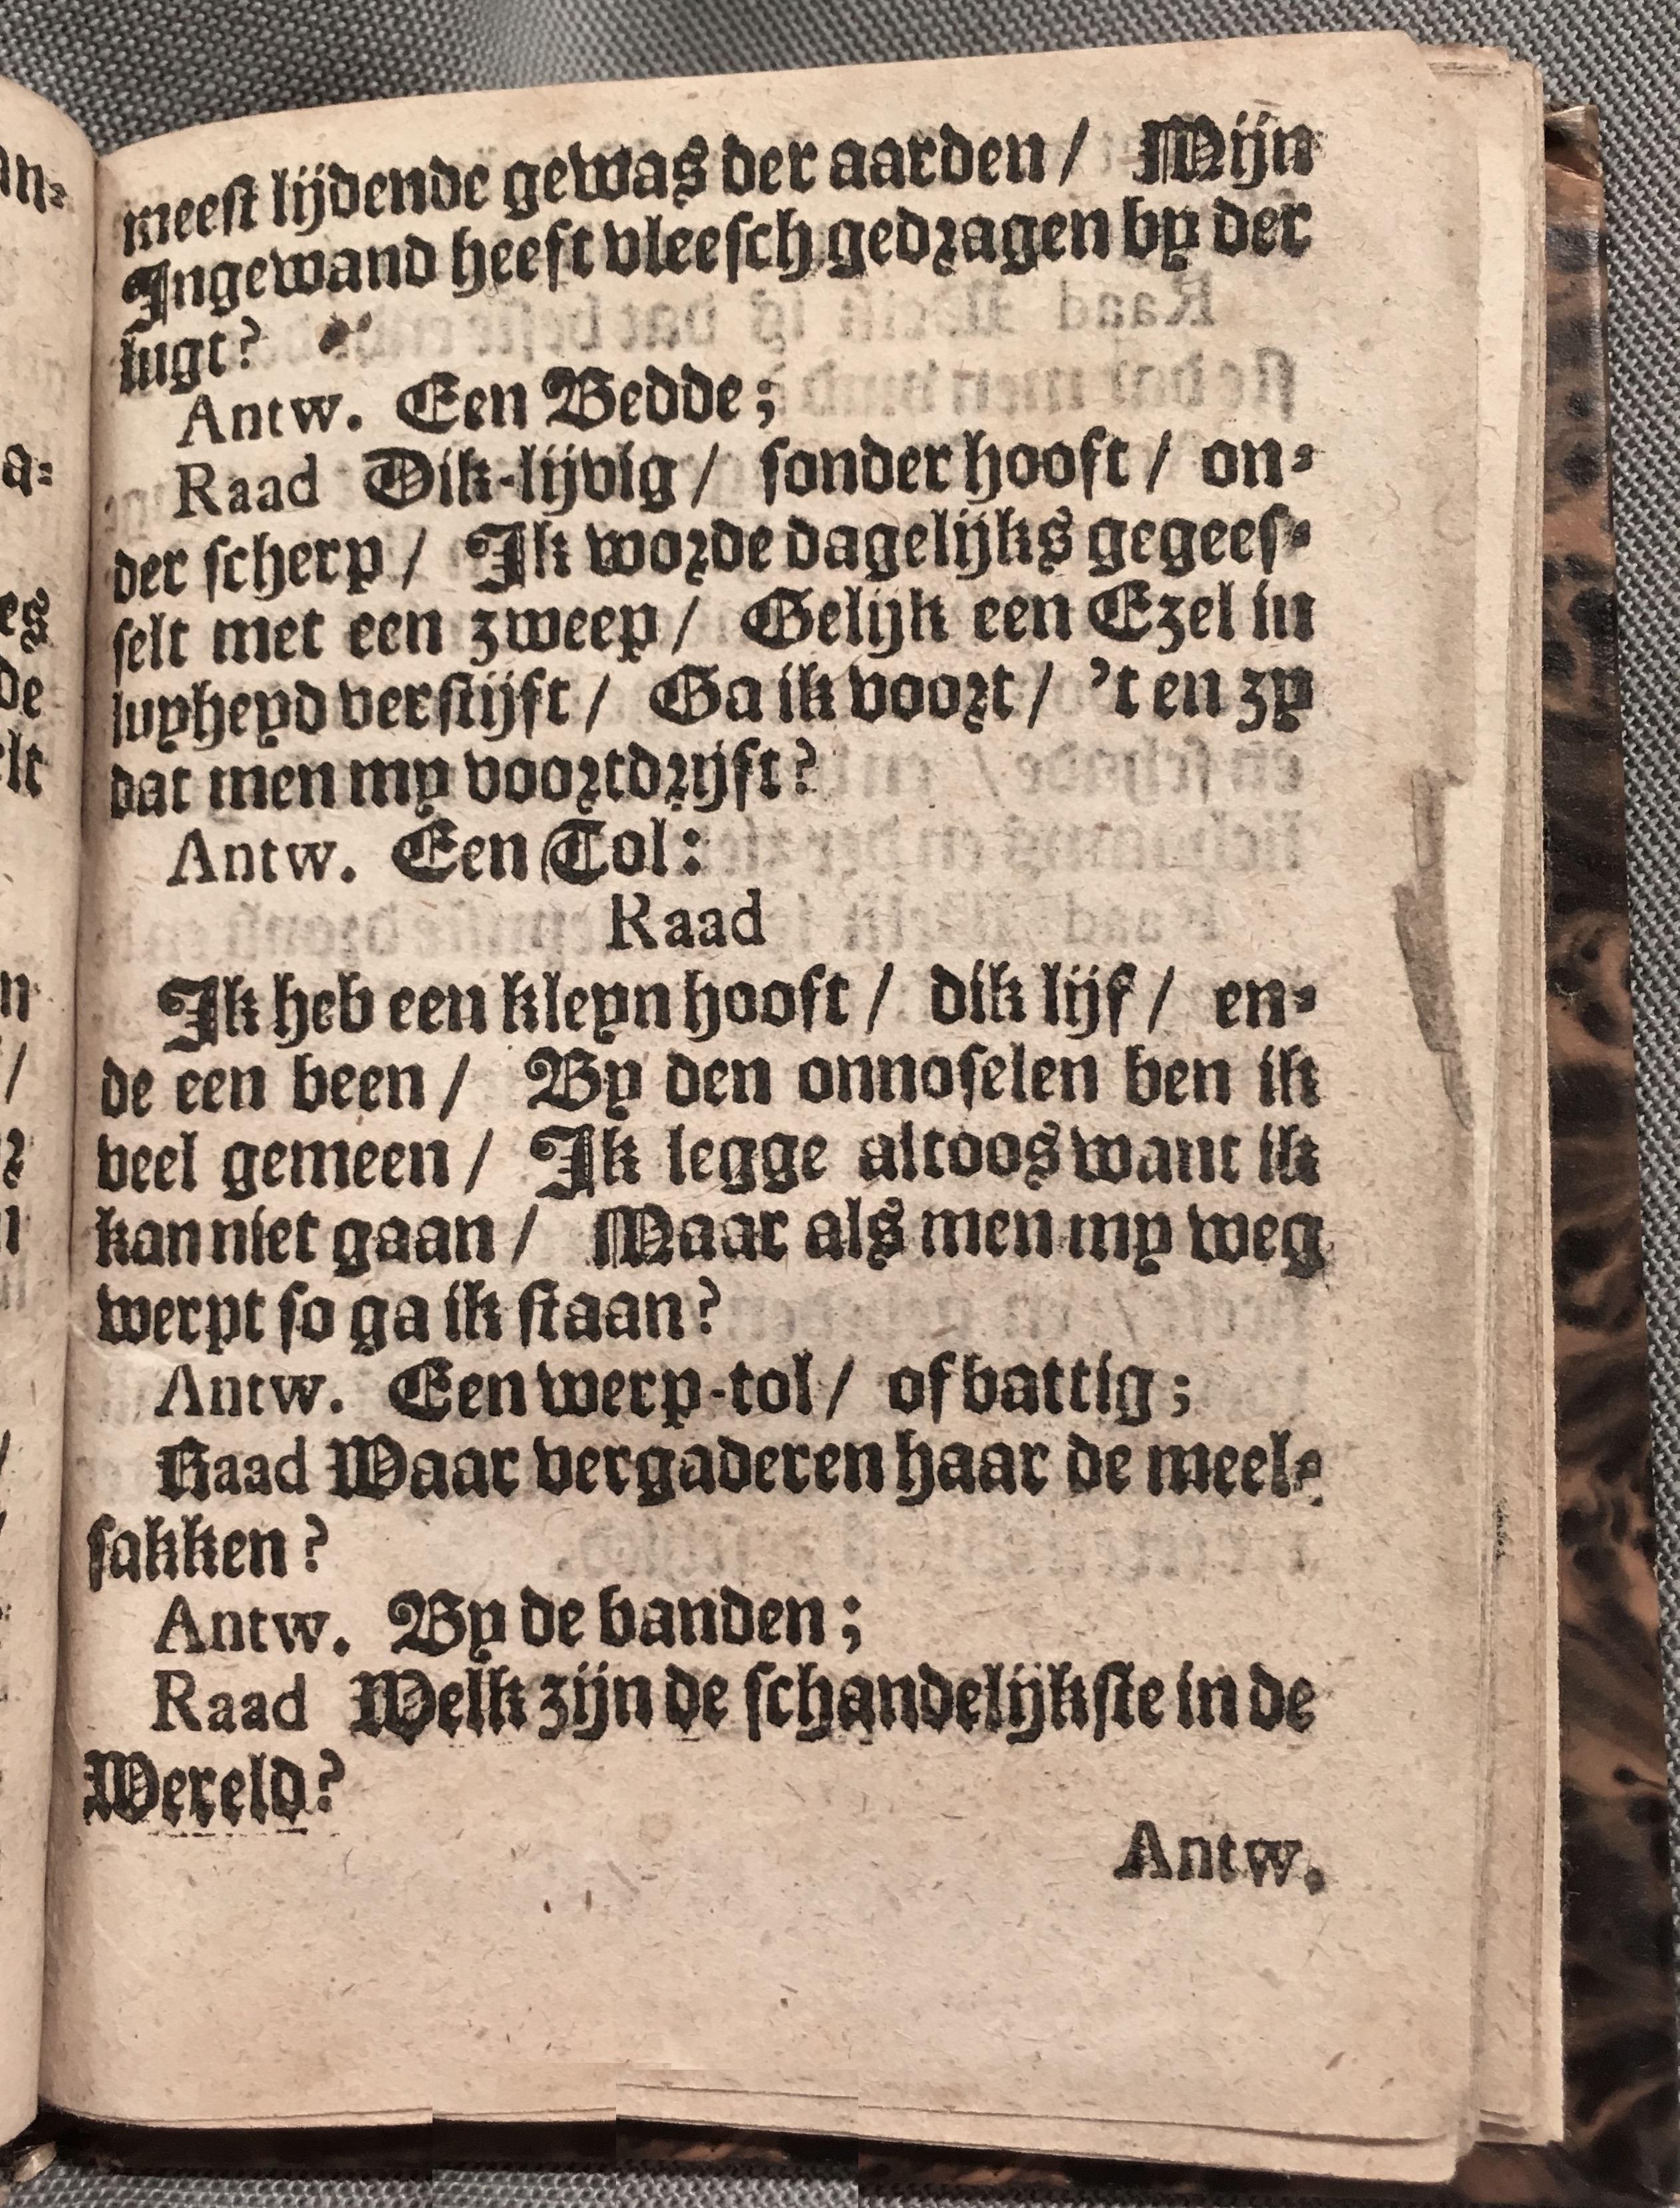 meest lijdende gewas der aarden / Mijn
Ingewand heeft vleesch gedragen by der
lugt?
Antw. Een Bedde;
Raad Dik-lijvig / sonder hooft / on-
der scherp / Ik worde dagelijks gegees-
selt met een zweep / Gelijk een Ezel in
luyheyd verstijft / Ga ik voort / 't en zy
dat men my voortdrijft?
Antw. Een Tol:
Raad
Ik heb een kleyn hooft / dik lijf / en-
de een been / By den onnoselen ben ik
veel gemeen / Ik legge altoos want ik
kan niet gaan / Maar als men my weg
werpt so ga ik staan?
Antw. Een werp-tol / of battig;
Raad Waar vergaderen haar de meel-
sakken?
Antw. By de banden;
Raad Welk zijn de schandelijkste in de
Wereld?
Antw.